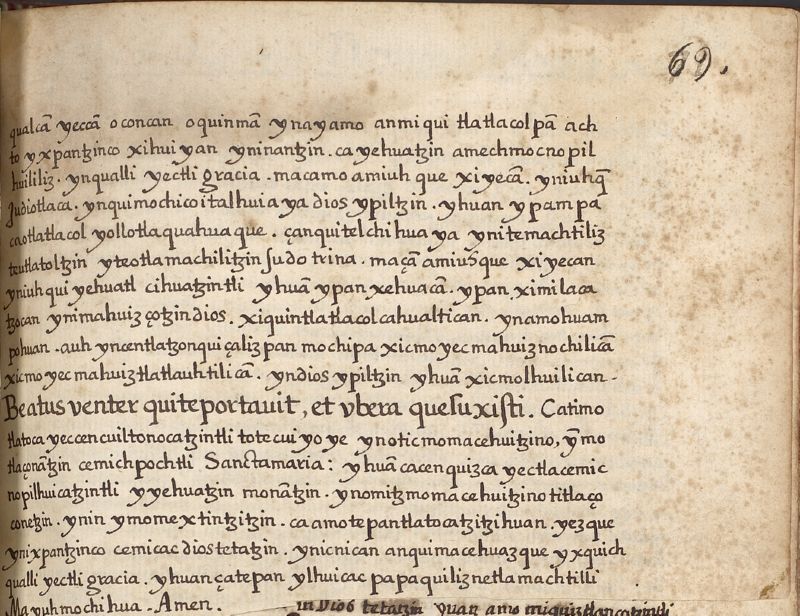 69.
qualcā yeccā oconcan oquinmā ynayamo anmiqui tlatlacolpā ach
to yxpantzinco xihuiyan yninantzin. ca yehuatzin amechmocnopil
huililiz. ynqualli yectli gracia. macamo amiuh que xiyecā. yniuhq̄
Judiotlaca. ynquimochicoitalhuia ya dios ypiltzin. yhuan ypampa
ca otlatlacol yollotlaquahuaque. çanquitelchihua ya ynitemachtiliz
teutlatoltzin yteotlamachilitzin su dotrina. maçā amiuhque xiyecan
yniuhqui yehuatl cihuatzintli yhuā ypan xehuacā. ypan ximilaca
tzocan ynimahuizçotzin dios. xiquintlatlacolcahualtican. ynamohuam
pohuan. auh yncentlatzonquiçalizpan mochipa xicmoyecmahuiznochilicā
xicmoyecmahuiztlatlauhtilicā. yndios ypiltzin yhuā xicmolhuilican.
Beatus venter qui te portauit, et vbera que suxisti. Catimo
tlatoca yeccencuiltonocatzintli totecuiyoye ynoticmomacehuitzino, ȳmo
tlaçonātzin cemichpochtli Sancta maria: yhuā cacenquizca yectlacemic
nopilhuicatzintli yyehuatzin monātzin. ynomitzmomacehuitzino titlaço
conetzin. ynin ymomextintzitzin. ca amotepantlatocatzitzihuan. yezque
ynixpantzinco cemicac dios tetatzin. ynicnican anquimacehuazque yxquich
qualli yectli gracia. yhuan çatepan ylhuicac papaquiliznetlamachtilli
Mayuhmochihua. Amen. in Dios tetatzin yuan amo miquiztlancatzintli